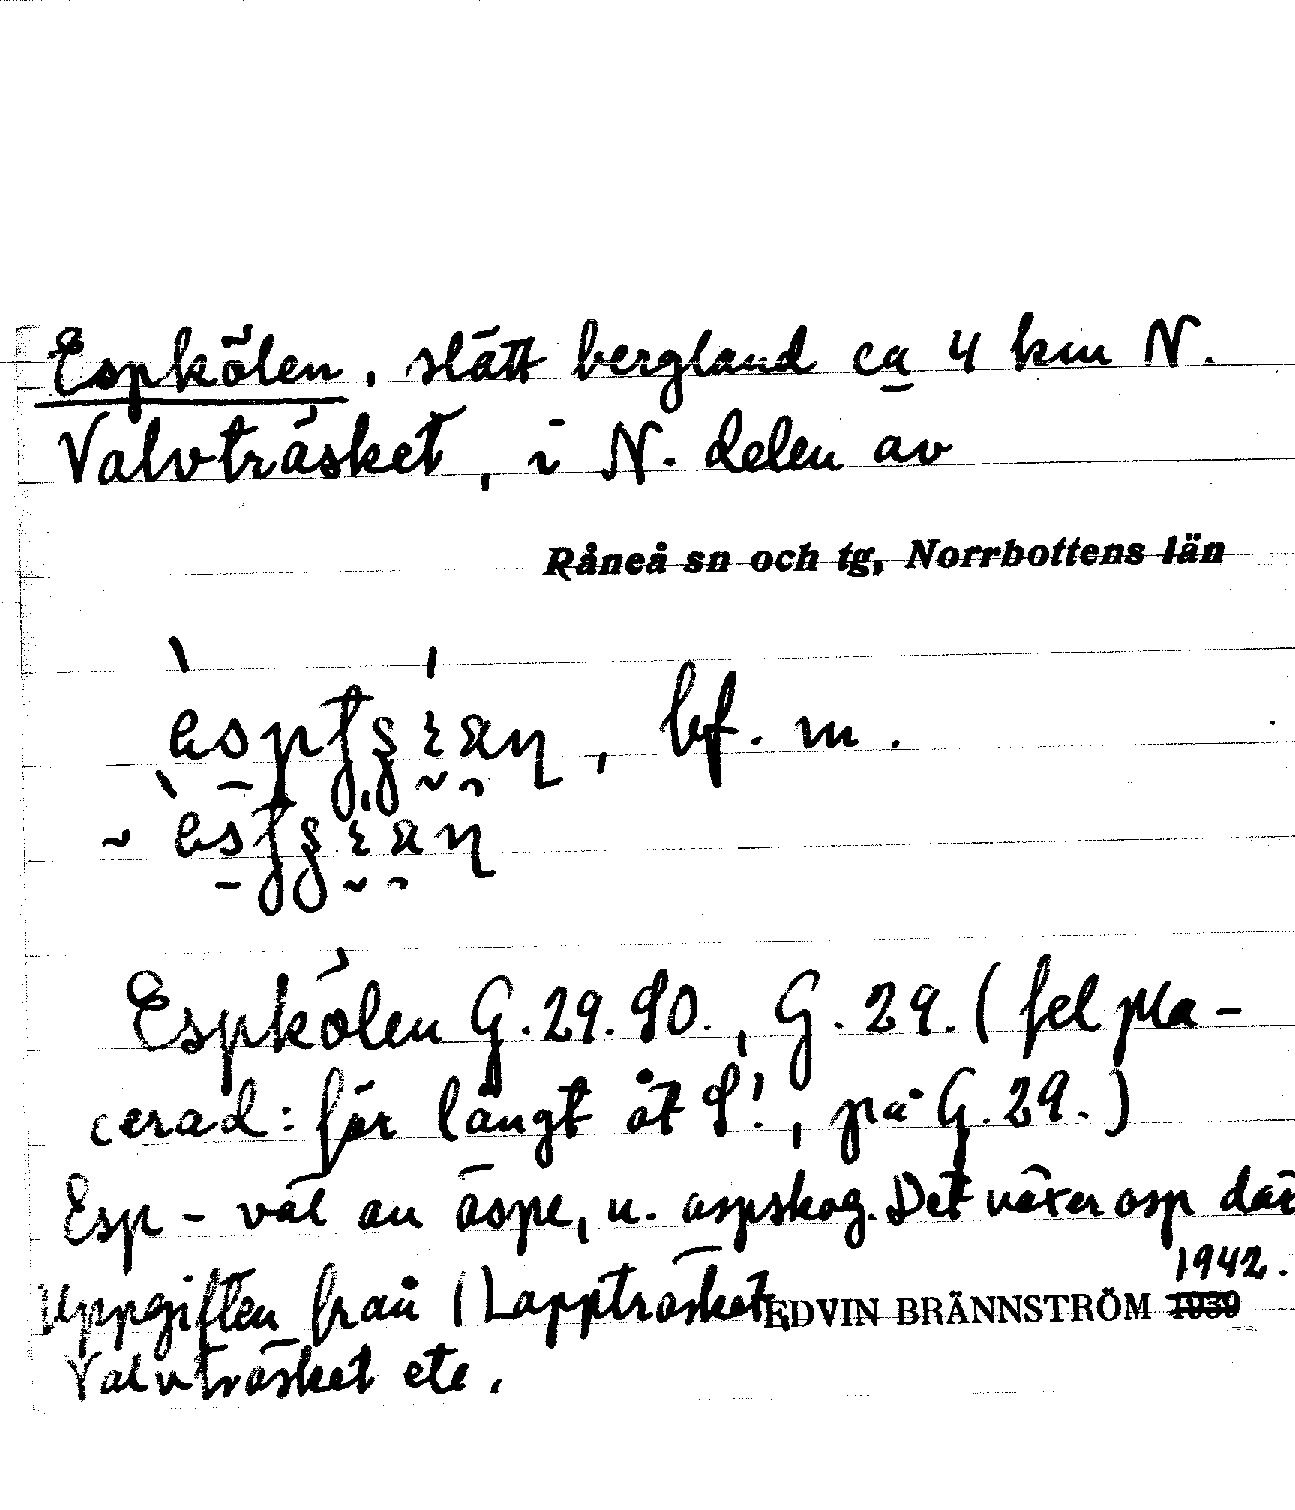 Espkölen, slätt bergland ca 4 km N.
Valvträsket, i N. delen av
Råneå sn och tg, Norrbottens län
, bf. m.
~
Espkölen G.29.80., G.29. (felpla-
cerad: för långt åt S!, på G.29.)
Esp- väl av äspe, n. aspskog. Det växer asp där
1942.
Uppgiften från (Lappträsket, EDVIN BRÄNNSTRÖM 1939
Valvträsket etc.